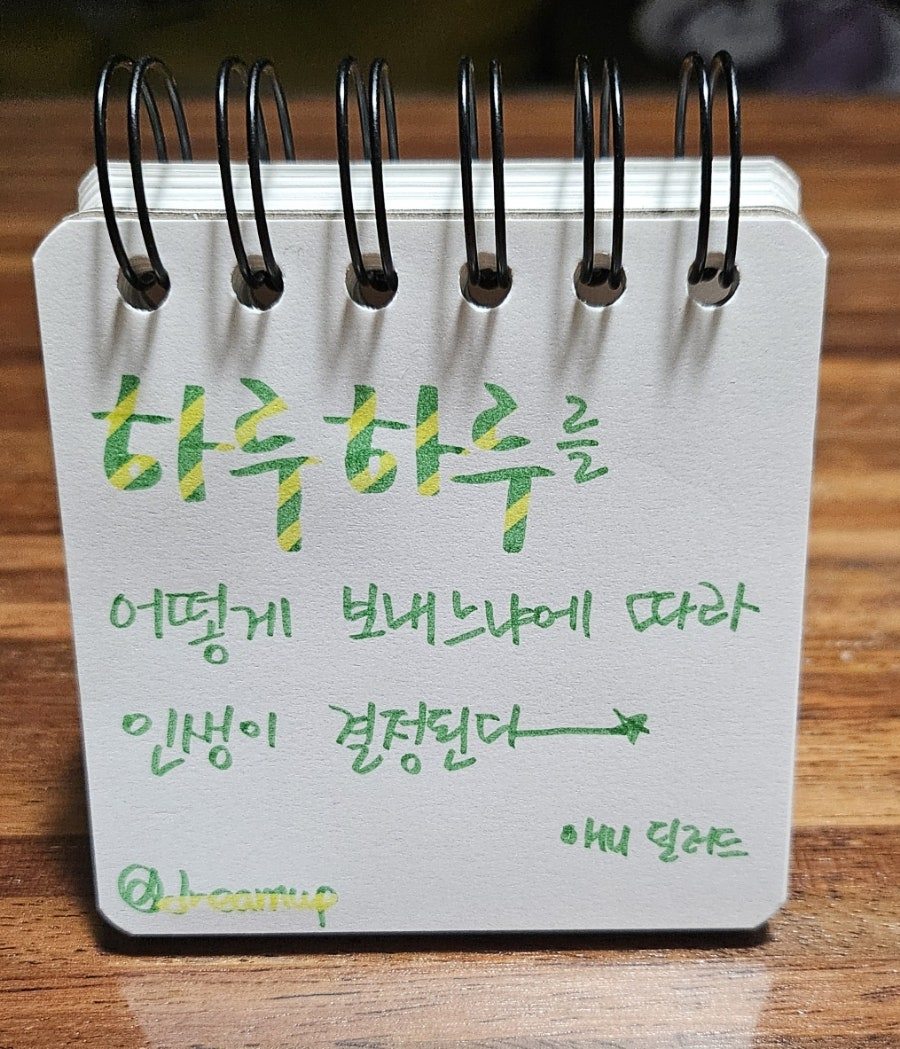 하루하루를
어떻게 보내느냐에 따라
인생이 결정된다
애니 딜러드
@dreamup